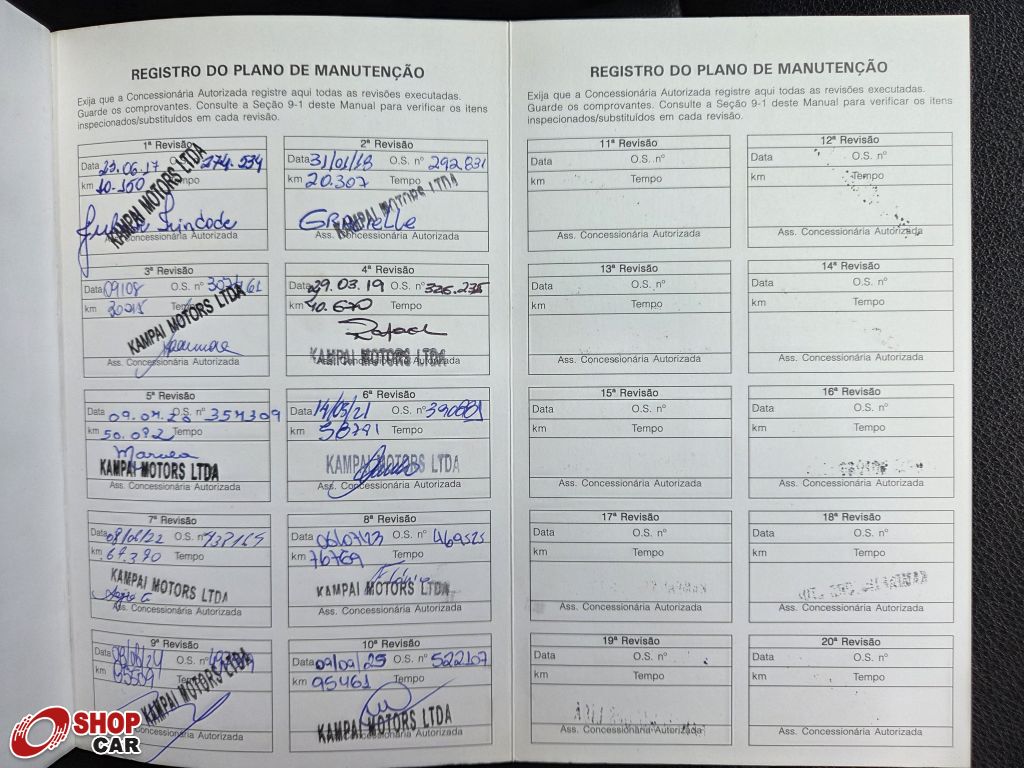 REGISTRO DO PLANO DE MANUTENÇÃO
Exija que a Concessionária Autorizada registre aqui todas as revisões executadas.
Guarde os comprovantes. Consulte a Seção 9-1 deste Manual para verificar os itens
inspecionados/substituídos em cada revisão.
1ª Revisão
Data 23.06.17 274.534
km 10.150 Tempo
KAMPAI MOTORS LTDA
Ass. Concessionária Autorizada
2ª Revisão
Data 31/01/18 O.S. nº 292831
km 20.307 Tempo
KAMPAI MOTORS LTDA
Ass. Concessionária Autorizada
3ª Revisão
Data 09/08 O.S. nº
km Tempo
KAMPAI MOTORS LTDA
Ass. Concessionária Autorizada
4ª Revisão
Data 29.03.19 O.S. nº 326.235
km 40.670 Tempo
Rafael
KAMPAI MOTORS LTDA
5ª Revisão
Data O.S. nº 357309
km 50.092 Tempo
KAMPAI MOTORS LTDA
Ass. Concessionária Autorizada
6ª Revisão
Data 14/05/21 O.S. nº
km 58791 Tempo
KAMPAI MOTORS LTDA
Ass. Concessionária Autorizada
7ª Revisão
Data 08/06/22 O.S. nº
km 67.390 Tempo
KAMPAI MOTORS LTDA
Ass. Concessionária Autorizada
8ª Revisão
Data 06/07/23 O.S. nº 469525
km 76769 Tempo
KAMPAI MOTORS LTDA
Ass. Concessionária Autorizada
9ª Revisão
Data O.S. nº
km
KAMPAI MOTORS LTDA
Concessionária Autorizada
10ª Revisão
Data 09/09/25 O.S. nº 522107
km 95461 Tempo
KAMPAI MOTORS LTDA
Concessionária Autorizada
REGISTRO DO PLANO DE MANUTENÇÃO
Exija que a Concessionária Autorizada registre aqui todas as revisões executadas.
Guarde os comprovantes. Consulte a Seção 9-1 deste Manual para verificar os itens
inspecionados/substituídos em cada revisão.
11ª Revisão
Data O.S. nº
km Tempo
Ass. Concessionária Autorizada
12ª Revisão
Data O.S. nº
km Tempo
Ass. Concessionária Autorizada
13ª Revisão
Data O.S. nº
km Tempo
Ass. Concessionária Autorizada
14ª Revisão
Data O.S. nº
km Tempo
Ass. Concessionária Autorizada
15ª Revisão
Data O.S. nº
km Tempo
Ass. Concessionária Autorizada
16ª Revisão
Data O.S. nº
km Tempo
Ass. Concessionária Autorizada
17ª Revisão
Data O.S. nº
km Tempo
Ass. Concessionária Autorizada
18ª Revisão
Data O.S. nº
km Tempo
Ass. Concessionária Autorizada
19ª Revisão
Data O.S. nº
km Tempo
Ass. Concessionária Autorizada
20ª Revisão
Data O.S. nº
km Tempo
Ass. Concessionária Autorizada
SHOP
CAR